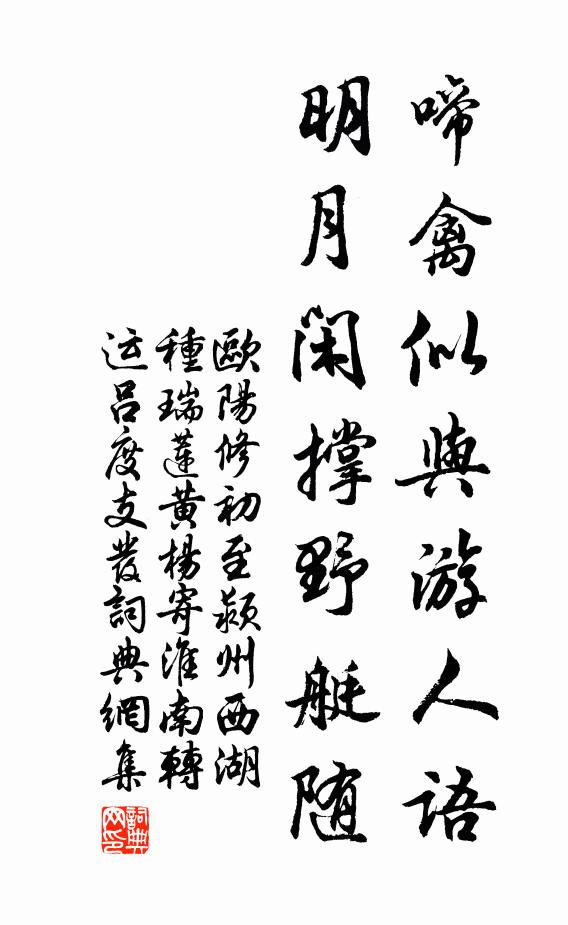 啼禽似與游人語
明月闲撑野艇随
歐陽修初至颍州西湖
種瑞莲黄楊寄淮南轉
运吕度支發詞典網集
詞典网印